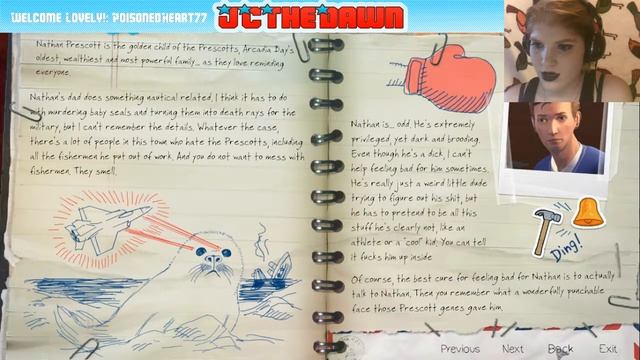 WELCOME LOVELY!: POISONEDHEART77
JCTHEDAWN
Nathan Prescott is the golden child of the Prescotts, Arcadia Bay's
oldest, wealthiest and most powerful family... as they love reminding
everyone.
Nathan's dad does something nautical related, I think it has to do
with murdering baby seals and turning them into death rays for the
military, but I can't remember the details. Whatever the case,
there's a lot of people in this town who hate the Prescotts, including
all the fishermen he put out of work. And you do not want to mess with
fishermen. They smell.
Nathan is... odd. He's extremely
privileged, yet dark and brooding.
Even though he's a dick, I can't
help feeling bad for him sometimes.
He's really just a weird little dude
trying to figure out his shit, but
he has to pretend to be all this
stuff he's clearly not, like an
athlete or a "cool" kid. You can tell
it fucks him up inside.
Ding!
Of course, the best cure for feeling bad for Nathan is to actually
talk to Nathan. Then you remember what a wonderfully punchable
face those Prescott genes gave him.
Previous Next Back Exit